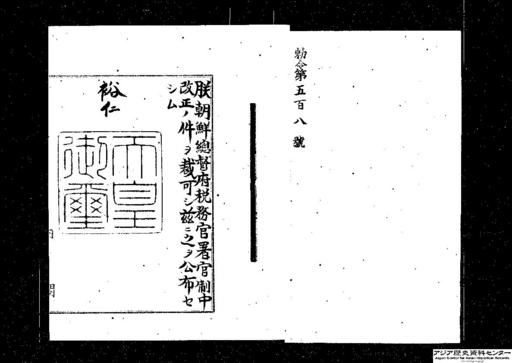 勅令第五百八號
朕朝鮮總督府税務官署官制中
改正ノ件ヲ裁可シ茲ニ之ヲ公布セ
シム
裕仁
天皇
御璽
内
閣
アジア歴史資料センター
Japan Center for Asian Historical Records